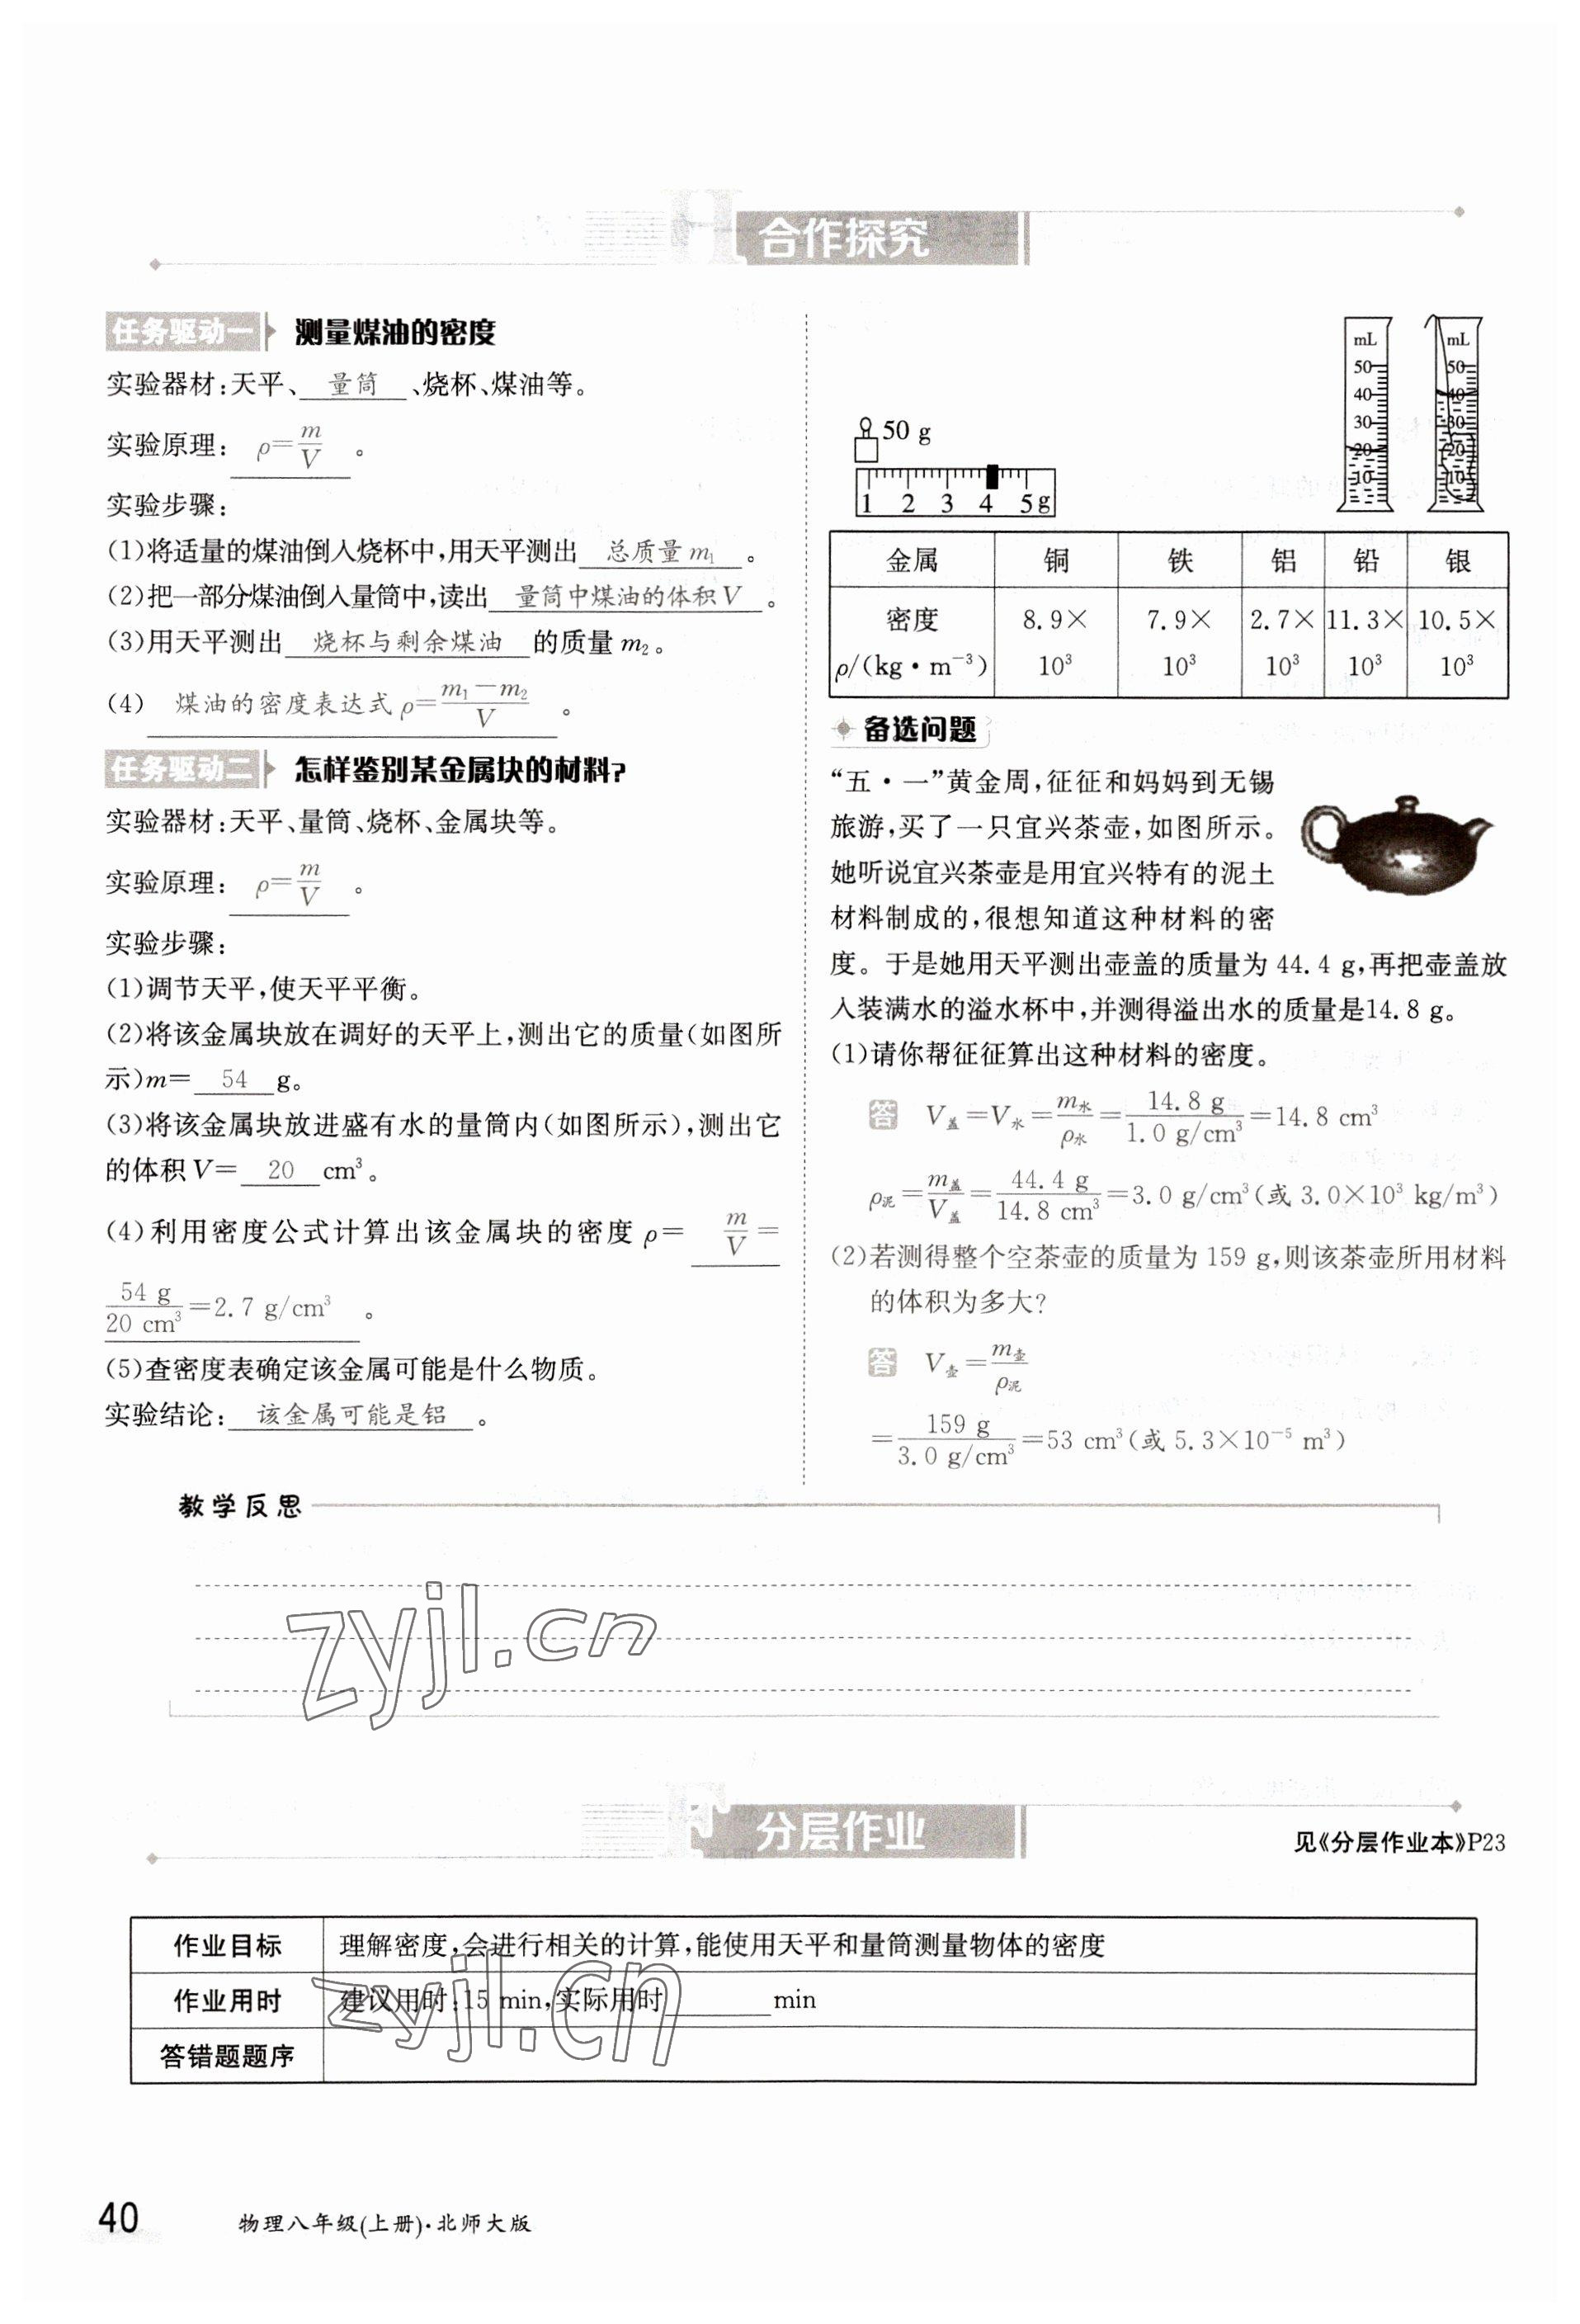 合作探究
任务驱动一 测量煤油的密度
实验器材:天平、 量筒 、烧杯、煤油等。
实验原理: ρ=m/V 。
实验步骤:
(1)将适量的煤油倒入烧杯中,用天平测出 总质量 m₁ 。
(2)把一部分煤油倒入量筒中,读出 量筒中煤油的体积 V 。
(3)用天平测出 烧杯与剩余煤油 的质量 m₂。
(4) 煤油的密度表达式 ρ=(m₁-m₂)/V 。
任务驱动二 怎样鉴别某金属块的材料?
实验器材:天平、量筒、烧杯、金属块等。
实验原理: ρ=m/V 。
实验步骤:
(1)调节天平,使天平平衡。
(2)将该金属块放在调好的天平上,测出它的质量(如图所
示)m= 54 g。
(3)将该金属块放进盛有水的量筒内(如图所示),测出它
的体积 V= 20 cm³。
(4)利用密度公式计算出该金属块的密度 ρ= m/V =
54 g/20 cm³=2.7 g/cm³ 。
(5)查密度表确定该金属可能是什么物质。
实验结论: 该金属可能是铝 。
50 g
1 2 3 4 5g
mL
50
40
30
20
10
mL
50
40
30
20
10
金属 铜 铁 铝 铅 银
密度 8.9× 7.9× 2.7× 11.3× 10.5×
ρ/(kg·m⁻³) 10³ 10³ 10³ 10³ 10³
备选问题
“五·一”黄金周,征征和妈妈到无锡
旅游,买了一只宜兴茶壶,如图所示。
她听说宜兴茶壶是用宜兴特有的泥土
材料制成的,很想知道这种材料的密
度。于是她用天平测出壶盖的质量为 44.4 g,再把壶盖放
入装满水的溢水杯中,并测得溢出水的质量是14.8 g。
(1)请你帮征征算出这种材料的密度。
答 V盖=V水=m水/ρ水=14.8 g/1.0 g/cm³=14.8 cm³
ρ泥=m盖/V盖=44.4 g/14.8 cm³=3.0 g/cm³(或 3.0×10³ kg/m³)
(2)若测得整个空茶壶的质量为 159 g,则该茶壶所用材料
的体积为多大?
答 V壶=m壶/ρ泥
=159 g/3.0 g/cm³=53 cm³(或 5.3×10⁻⁵ m³)
教学反思
zyjl.cn
分层作业
见《分层作业本》P23
作业目标 理解密度,会进行相关的计算,能使用天平和量筒测量物体的密度
作业用时 建议用时:15 min,实际用时________min
答错题题序
zyjl.cn
40 物理八年级(上册)·北师大版